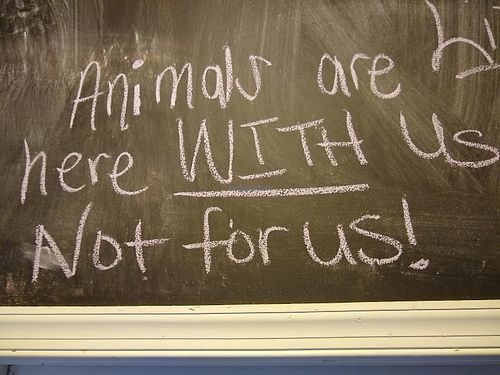 Animals are
here WITH us
Not for us!